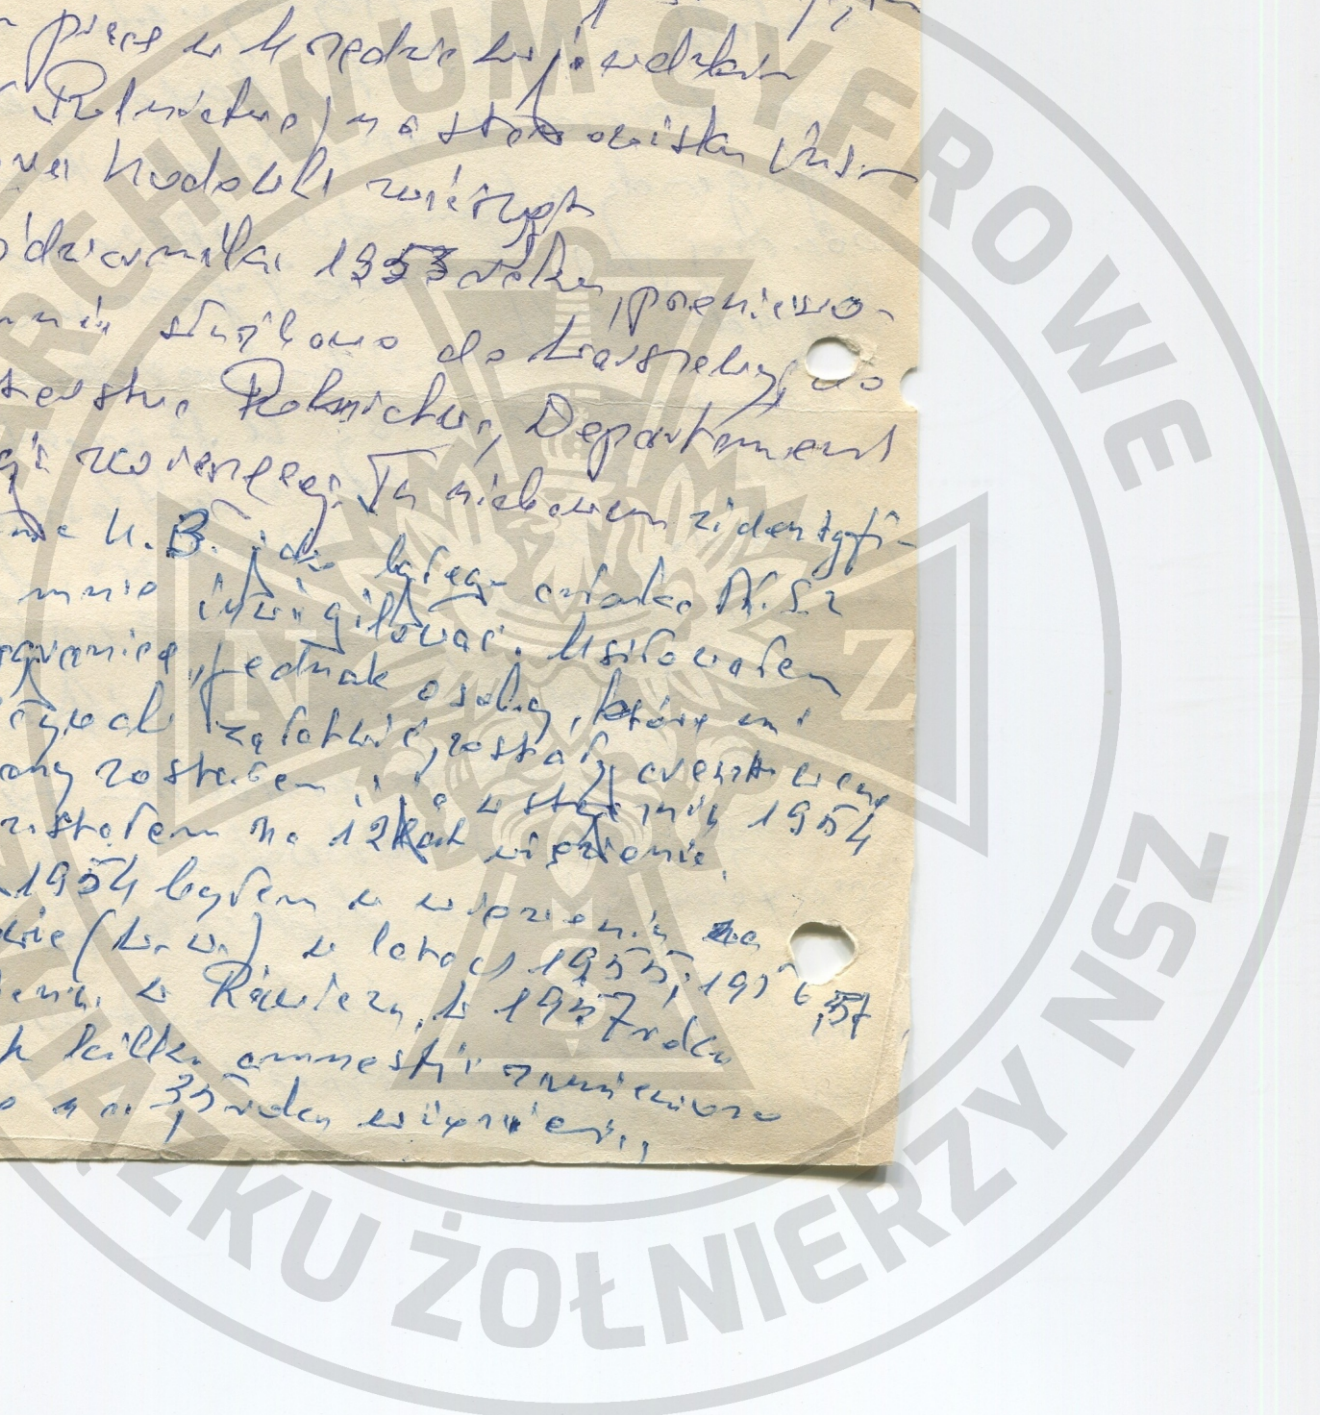 pracę w Urzędzie Wojewódzkim
Rolnictwa) na stanowisku
hodowli zwierząt
październiku 1953 roku, przeniesio-
służbowo do Warszawy, do
Rolnictwa, Departament
zwierzęcej. Tu niebawem zidentyfi-
U.B. jako byłego członka N.S.Z
mnie inwigilować. Usiłowałem
granicę, jednak osoby, które mi
załatwić, zostały aresztowane
zostałem i w styczniu 1954
zostałem na 12 lat więzienia.
1954 byłem w więzieniu na
(W-wa). w latach 1955, 1956, 57
w Rawiczu. W 1957 roku
kilku amnestii zmieniono
na 3,5 roku więzienia,
ARCHIWUM CYFROWE
ZWIĄZKU ŻOŁNIERZY NSZ
N Z
S